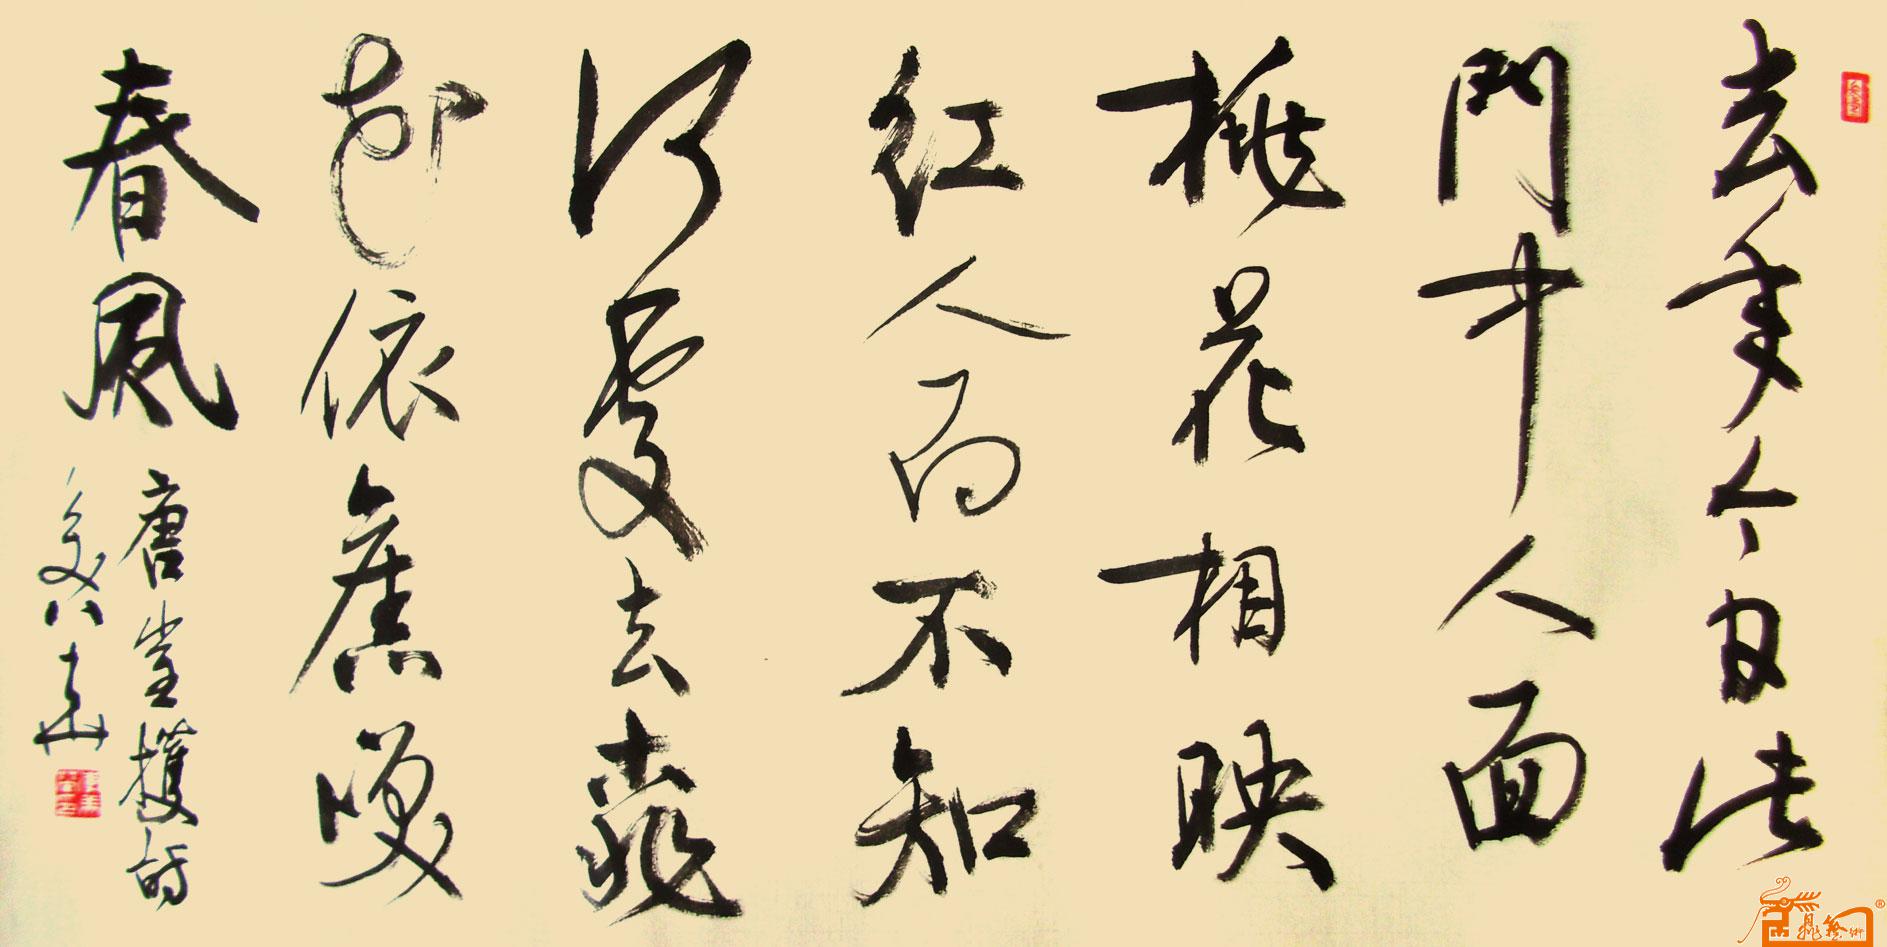 去年今日此
門中人面
桃花相映
紅人面不知
何處去桃
花依舊咲
春風
唐崔護詩